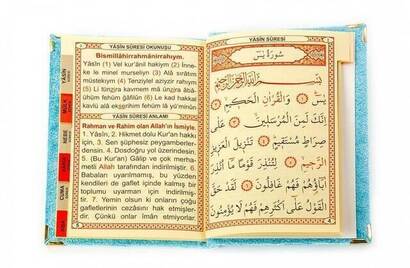 YÂSİN SÛRESİ OKUNUŞU
Bismillâhirrahmânirrahıym.
Yâsîn (1) Vel kur'ânil hakiym (2) İnne-
ke le minel murseliyn (3) Alâ sırâtım
müstekıym (4) Tenziylel aziyzir rahıym
(5) Li tünzira kavmem mâ ünzira âbâ-
ühüm fehüm ğâfilûn (6) Le kad hakkal
kavlü alâ ekserihim fehüm lâ yü'minûn
YÂSİN SÛRESİ ANLAMI
Rahman ve Rahim olan Allah'ın İsmiyle.
1. Yâsîn, 2. Hikmet dolu Kur'an hakkı
için, 3. Sen şüphesiz peygamberler-
densin. 4. Dosdoğru yol üzerindesin.
5. (Bu Kur'an) Gâlip ve çok merha-
metli Allah tarafından indirilmiştir. 6.
Babaları uyarılmamış, bu yüzden
kendileri de gaflet içinde kalmış bir
toplumu uyarman için indirilmiş-
tir. 7. Yemin olsun ki onların çoğu
gafletlerinin cezasını hak etmişler-
dir. Çünkü onlar îmân etmiyorlar.
YÂSİN
MÜLK
NEBE
CUMA
YÂSİN SÛRESİ
سُورَةُ يٰسٓ
بِسْمِ اللّٰهِ الرَّحْمٰنِ الرَّحِيمِ
يٰسٓ ﴿١﴾ وَالْقُرْاٰنِ الْحَكِيمِ ﴿٢﴾
اِنَّكَ لَمِنَ الْمُرْسَلِينَ ﴿٣﴾ عَلٰى
صِرَاطٍ مُسْتَقِيمٍ ﴿٤﴾ تَنْزِيلَ الْعَزِيزِ
الرَّحِيمِ ﴿٥﴾ لِتُنْذِرَ قَوْمًا مَٓا اُنْذِرَ
اٰبَٓاؤُهُمْ فَهُمْ غَافِلُونَ ﴿٦﴾ لَقَدْ حَقَّ
الْقَوْلُ عَلٰٓى اَكْثَرِهِمْ فَهُمْ لَا يُؤْمِنُونَ